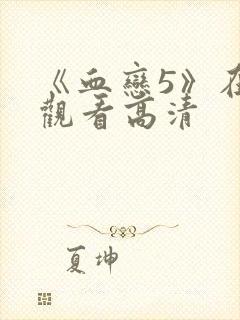 《血戀5》在
觀看高清
夏坤